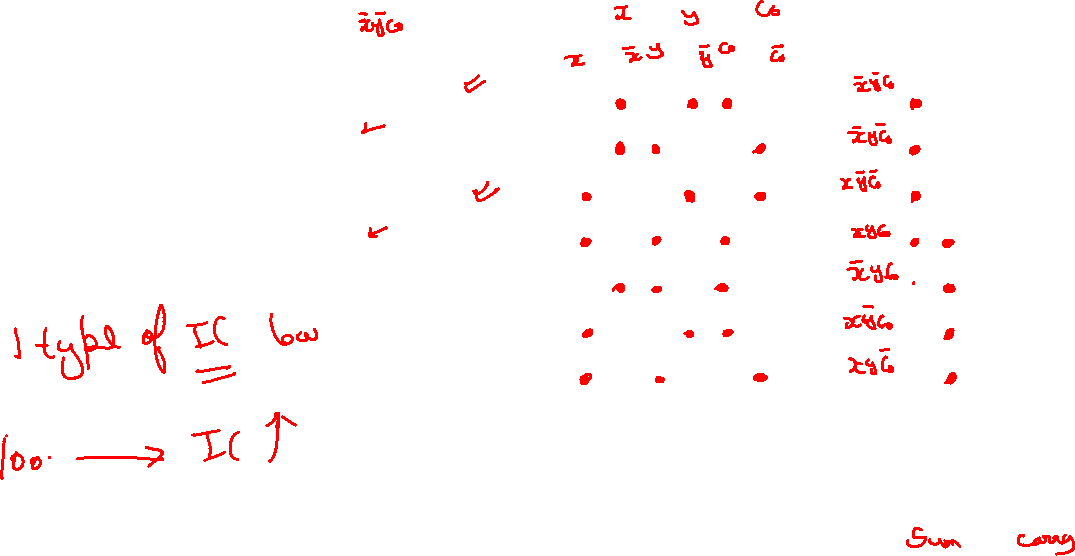 x̄ȳC₀
x y C₀
x x̄ y ȳ C₀ C̄₀
x̄ȳC₀
x̄yC̄₀
xȳC̄₀
xyC₀
x̄yC₀
xȳC₀
xyC̄₀
1 type of IC low
100 → IC ↑
Sum Carry